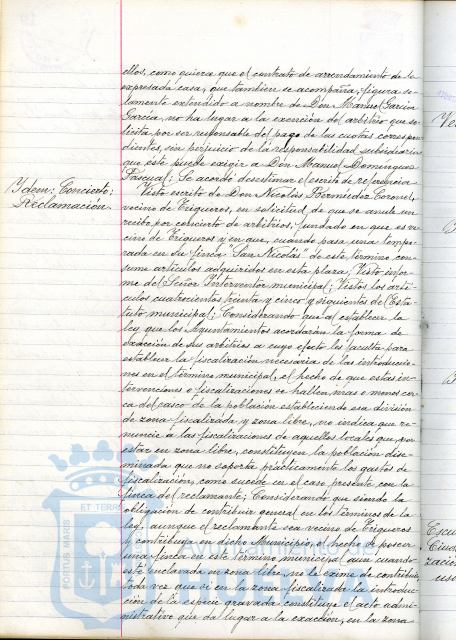 ellos, como quiera que el contrato de arrendamiento de la
expresada casa, que tambien se acompaña, figura so-
lamente extendido a nombre de Don Manuel Garcia
Garcia, no ha lugar a la exención del arbitrio que so-
licita por ser responsable del pago de las cuotas correspon-
dientes, sin perjuicio de la responsabilidad subsidiaria
que este puede exigir a Don Manuel Dominguez
Pascual; Se acordó desestimar el escrito de referencia
Idem: Concierto:
Reclamación.
Visto escrito de Don Nicolás Bermúdez Coronel,
vecino de Trigueros, en solicitud de que se anule un
recibo por concierto de arbitrios, fundado en que es ve-
cino de Trigueros y en que, cuando pasa una tempo-
rada en su finca "San Nicolás" de este término con-
sume articulos adquiridos en esta plaza; Visto infor-
me del Señor Interventor municipal; Vistos los arti-
culos cuatrocientos treinta y cinco y siguientes del Esta-
tuto municipal; Considerando que al establecer la
ley que los Ayuntamientos acordarán la forma de
exacción de sus arbitrios a cuyo efecto les faculta para
establecer la fiscalización necesaria de las introduccio-
nes en el término municipal, el hecho de que estas in-
tervenciones o fiscalizaciones se hallen mas o menos cer-
ca del casco de la población estableciendo asi división
de zona fiscalizada y zona libre, no indica que re-
nuncie a las fiscalizaciones de aquellos locales que por
estar en zona libre, constituyen la población dise-
minada que no soporta prácticamente los gastos de
fiscalización, como sucede en el caso presente con la
finca del reclamante; Considerando que siendo la
obligación de contribuir general en los términos de la
ley, aunque el reclamante sea vecino de Trigueros
y contribuya en dicho Municipio, el hecho de poseer
una finca en este término municipal aun cuando
esté enclavada en zona libre, no le exime de contribuir,
toda vez que si en la zona fiscalizada la introduc-
ción de la especie gravada constituye el acto admi-
nistrativo que da lugar a la exacción, en la zona
PORTUS MARIS
ET TERR